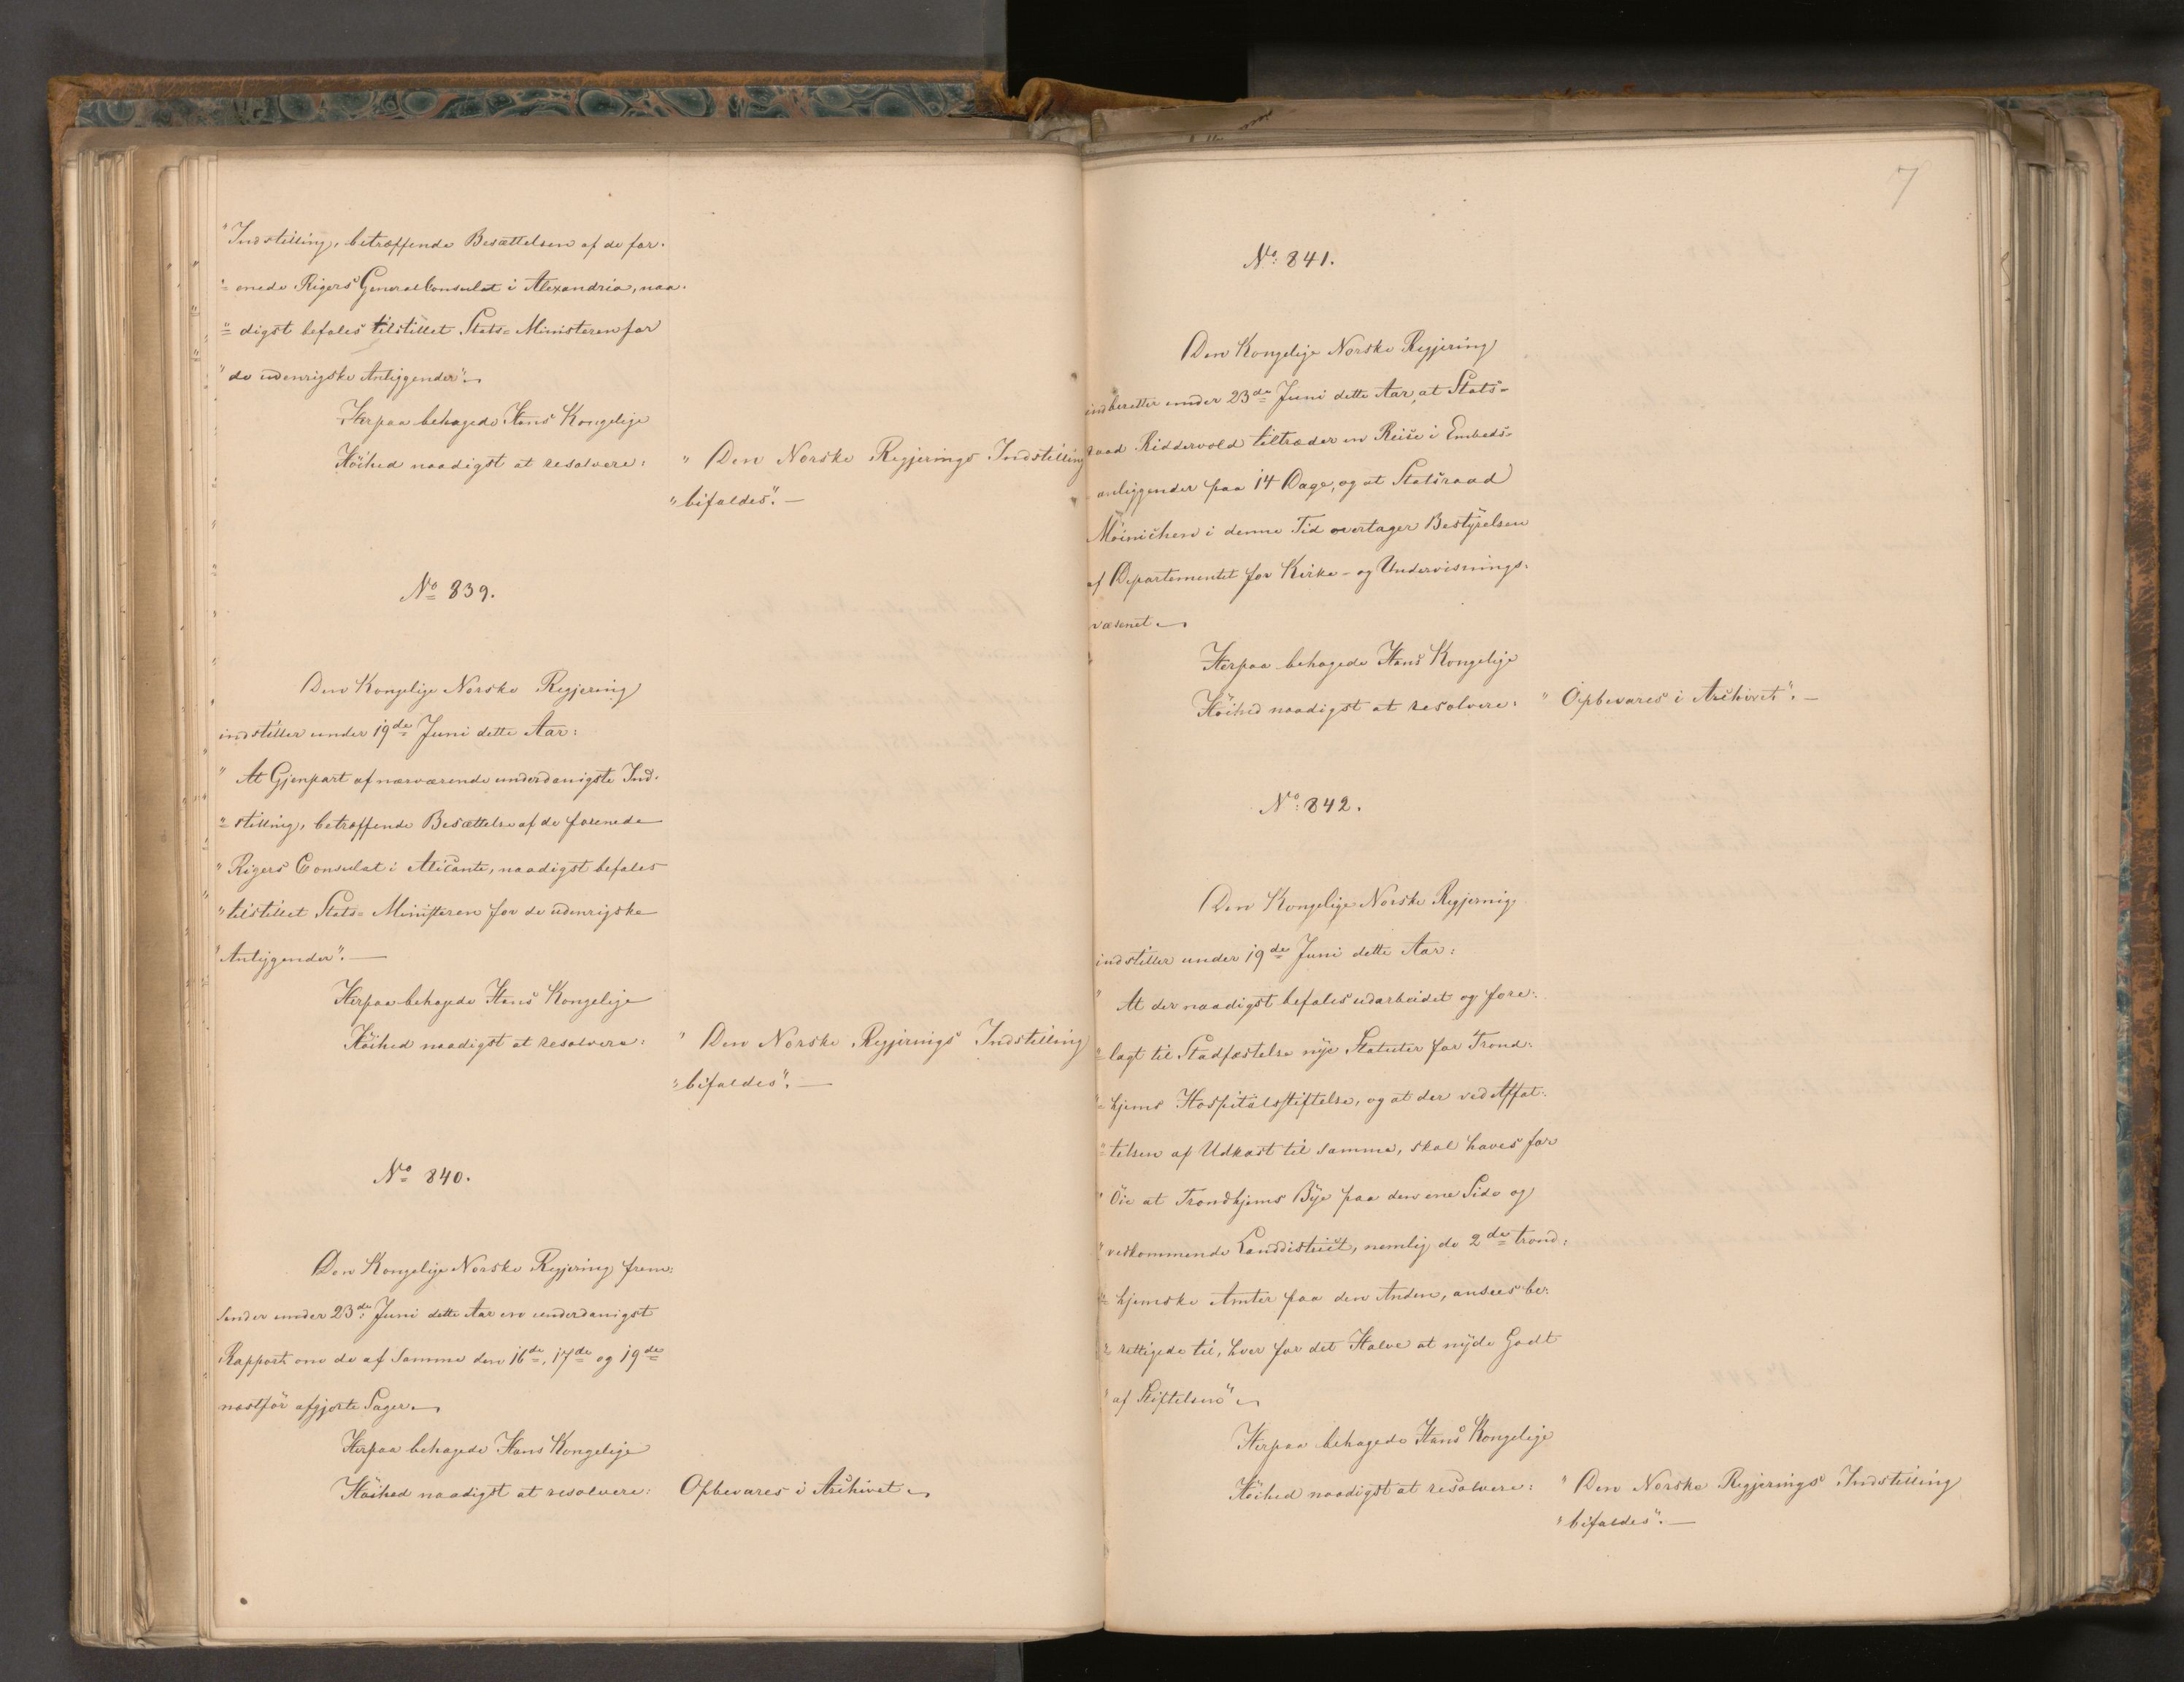 "Indstilling, betræffende Besættelsen af de for-
"=enede Rigers GeneralConsulat i Alexandria, naa-
"=digst befales tilstillet Stats=Ministeren for
"de udenrigske Anliggender".
Herpaa behagede Hans Kongelige
Höihed naadigst at resolvere:
"Den Norske Regjerings Indstilling
"bifaldes". —
No 839.
Den Kongelige Norske Regjering
indstiller under 19de Juni dette Aar:
"At Gjenpart af nærværende underdanigste Ind-
"=stilling, betræffende Besættelse af de forenede
"Rigers Consulat i Alicante, naadigst befales
"tilstillet Stats=Ministeren for de udenrigske
"Anliggender". —
Herpaa behagede Hans Kongelige
Höihed naadigst at resolvere:
"Den Norske Regjerings Indstilling
"bifaldes". —
No 840.
Den Kongelige Norske Regjering frem-
sender under 23de Juni dette Aar en underdanigst
Rapport om de af samme den 16de, 17de og 19de
næstför afgjorte Sager.
Herpaa behagede Hans Kongelige
Höihed naadigst at resolvere:
Opbevares i Archivet
7
No: 841.
Den Kongelige Norske Regjering
indberetter under 23de Juni dette Aar, at Stats=
raad Riddervold tiltræder en Reise i Embeds=
anliggender paa 14 Dage, og at Statsraad
Möinichen i denne Tid overtager Bestyrelsen
af Departementet for Kirke- og Undervisnings-
væsenet.
Herpaa behagede Hans Kongelige
Höihed naadigst at resolvere:
"Opbevares i Archivet". —
No: 842.
Den Kongelige Norske Regjering
indstiller under 19de Juni dette Aar:
"At der naadigst befales udarbeidet og fore-
"=lagt til Stadfæstelse nye Statuter for Trond-
"=hjems Hospitalsstiftelse, og at der ved Affat-
"=telsen af Udkast til samme, skal haves for
"Öie at Trondhjems Bye paa den ene Side og
"vedkommende Landdistrict, nemlig de 2de trond-
"=hjemske Amter paa den Anden, ansees be-
"=rettigede til, hver for det Halve at nyde Godt
"af Stiftelsen"
Herpaa behagede Hans Kongelige
Höihed naadigst at resolvere:
"Den Norske Regjerings Indstilling
"bifaldes". —